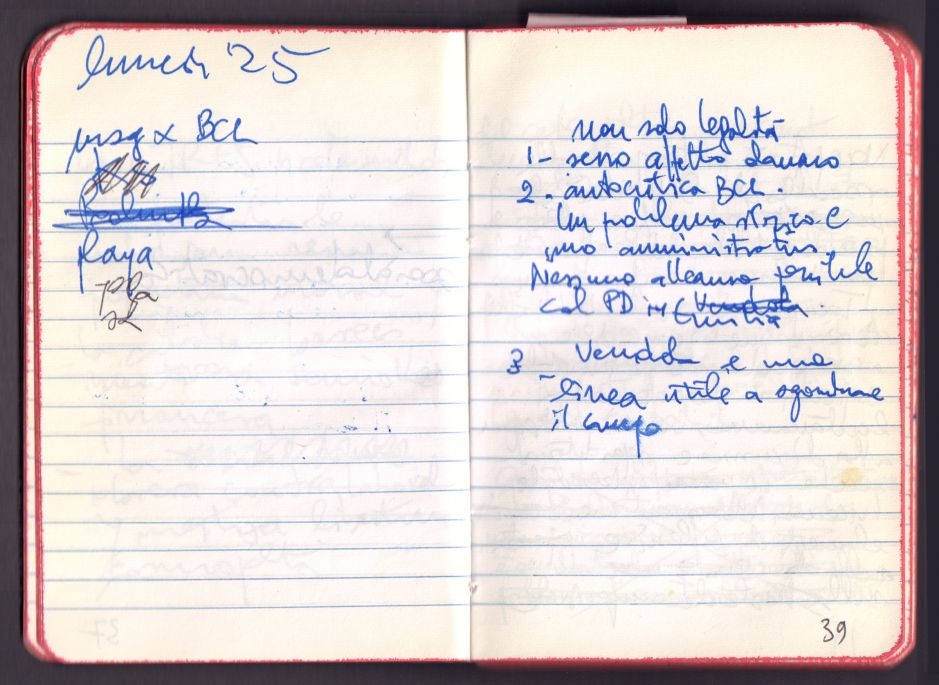 lunedì '25
msg x BCL
Raya
non solo legalità
1- sesso affetto danaro
2. autocritica BCL.
Un problema storico e
uno amministrativo
Nessuna alleanza possibile
col PD in Emilia
3 Vendola è una
linea utile a sgominare
il campo
39